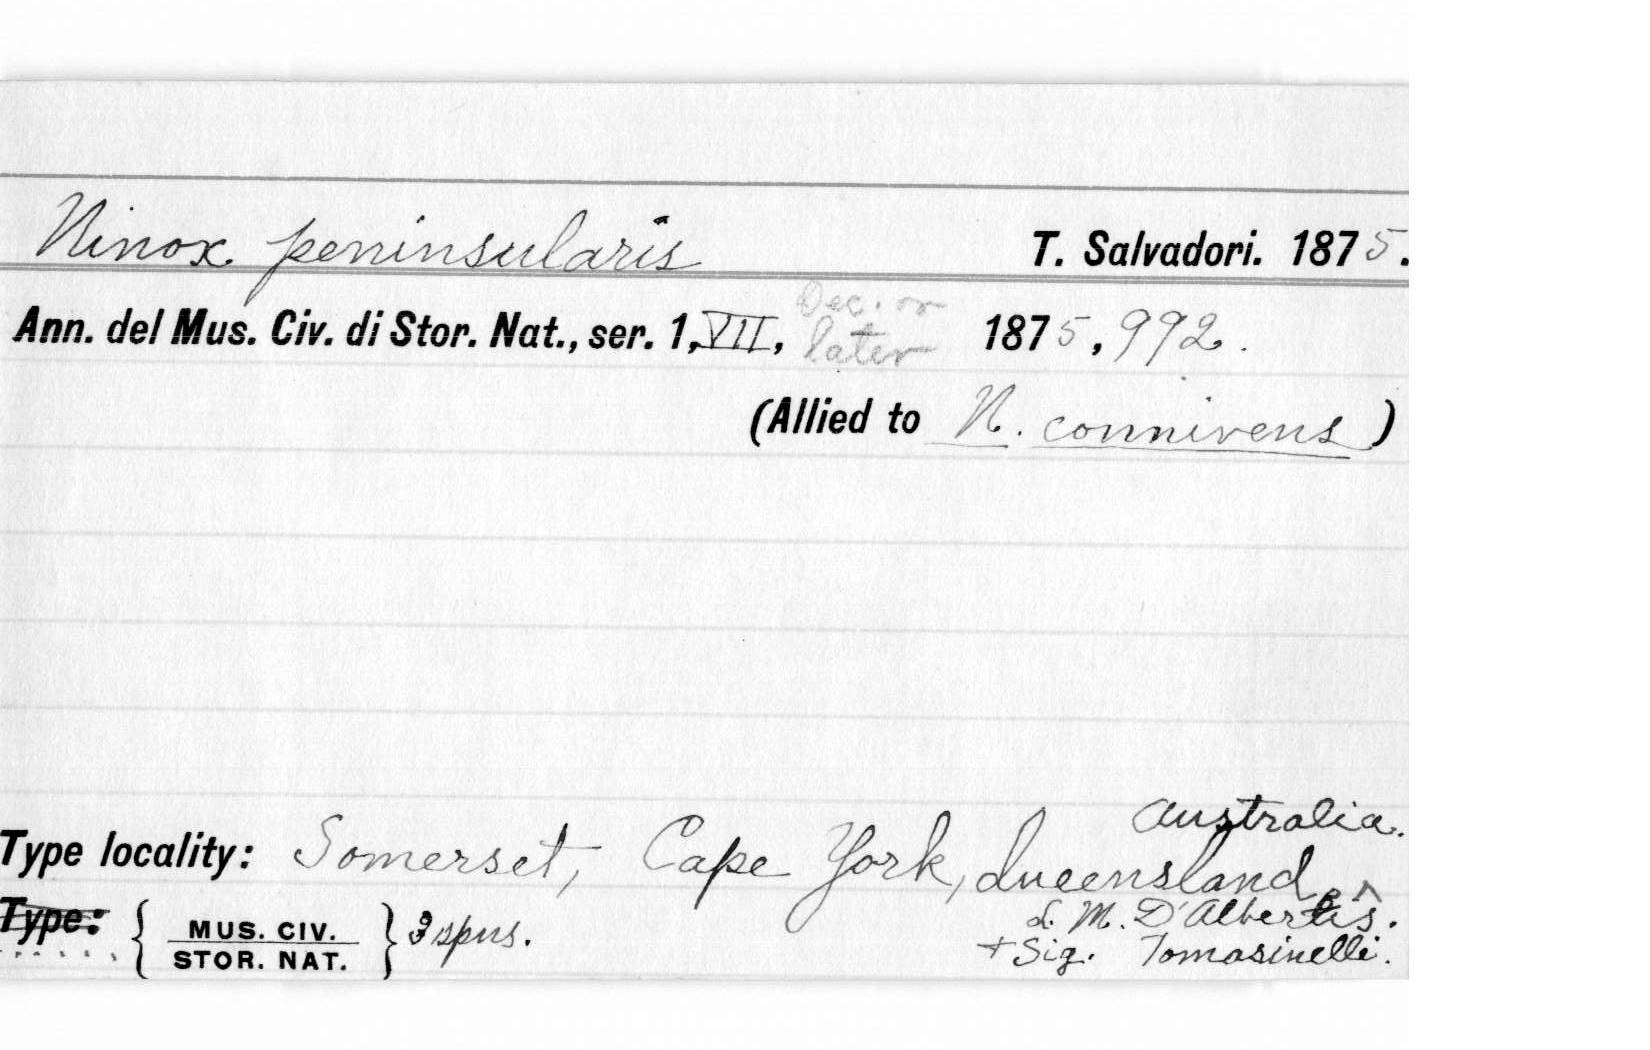 Ninox peninsularis T. Salvadori. 1875.
Ann. del Mus. Civ. di Stor. Nat., ser. 1, VII, Dec. or later 1875, 992.
(Allied to N. connivens)
Type locality: Somerset, Cape York, Queensland, Australia.
Type: { MUS. CIV. STOR. NAT. } 3 spns. L. M. D'Albertis.
+ Sig. Tomasinelli.